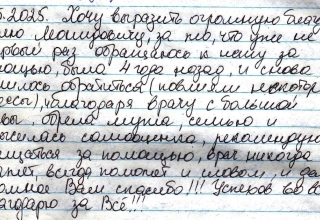 5.2025. Хочу выразить огромную благ
за то, что уже не
раз обращаюсь к нему за
мощью, была 4 года назад, и снова
шлось обратиться (повлияли некотор
ессы), благодаря врачу с большой
вы, обрела мужа, семью и
ысилась самооценка, рекомендую
щаться за помощью, врач никогда
всегда поможет и словом, и дел
омное Вам спасибо!!! Успехов во вс
агодарю за Всё!!!